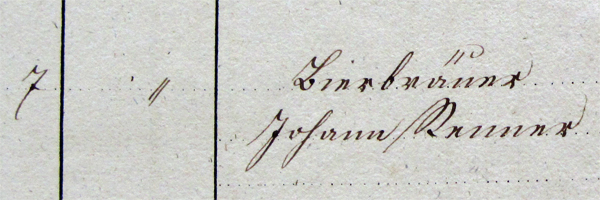 7 〃 Bierbräuer
Johann Renner